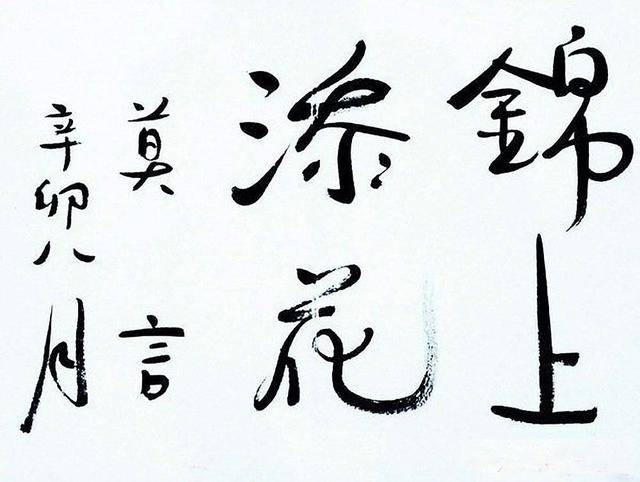 錦上
添花
莫言
辛卯八月